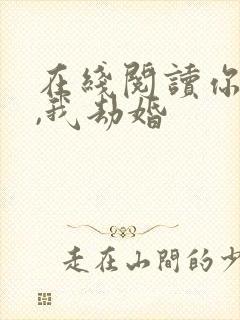 在綫閱讀你
,我劫婚
走在山間的少